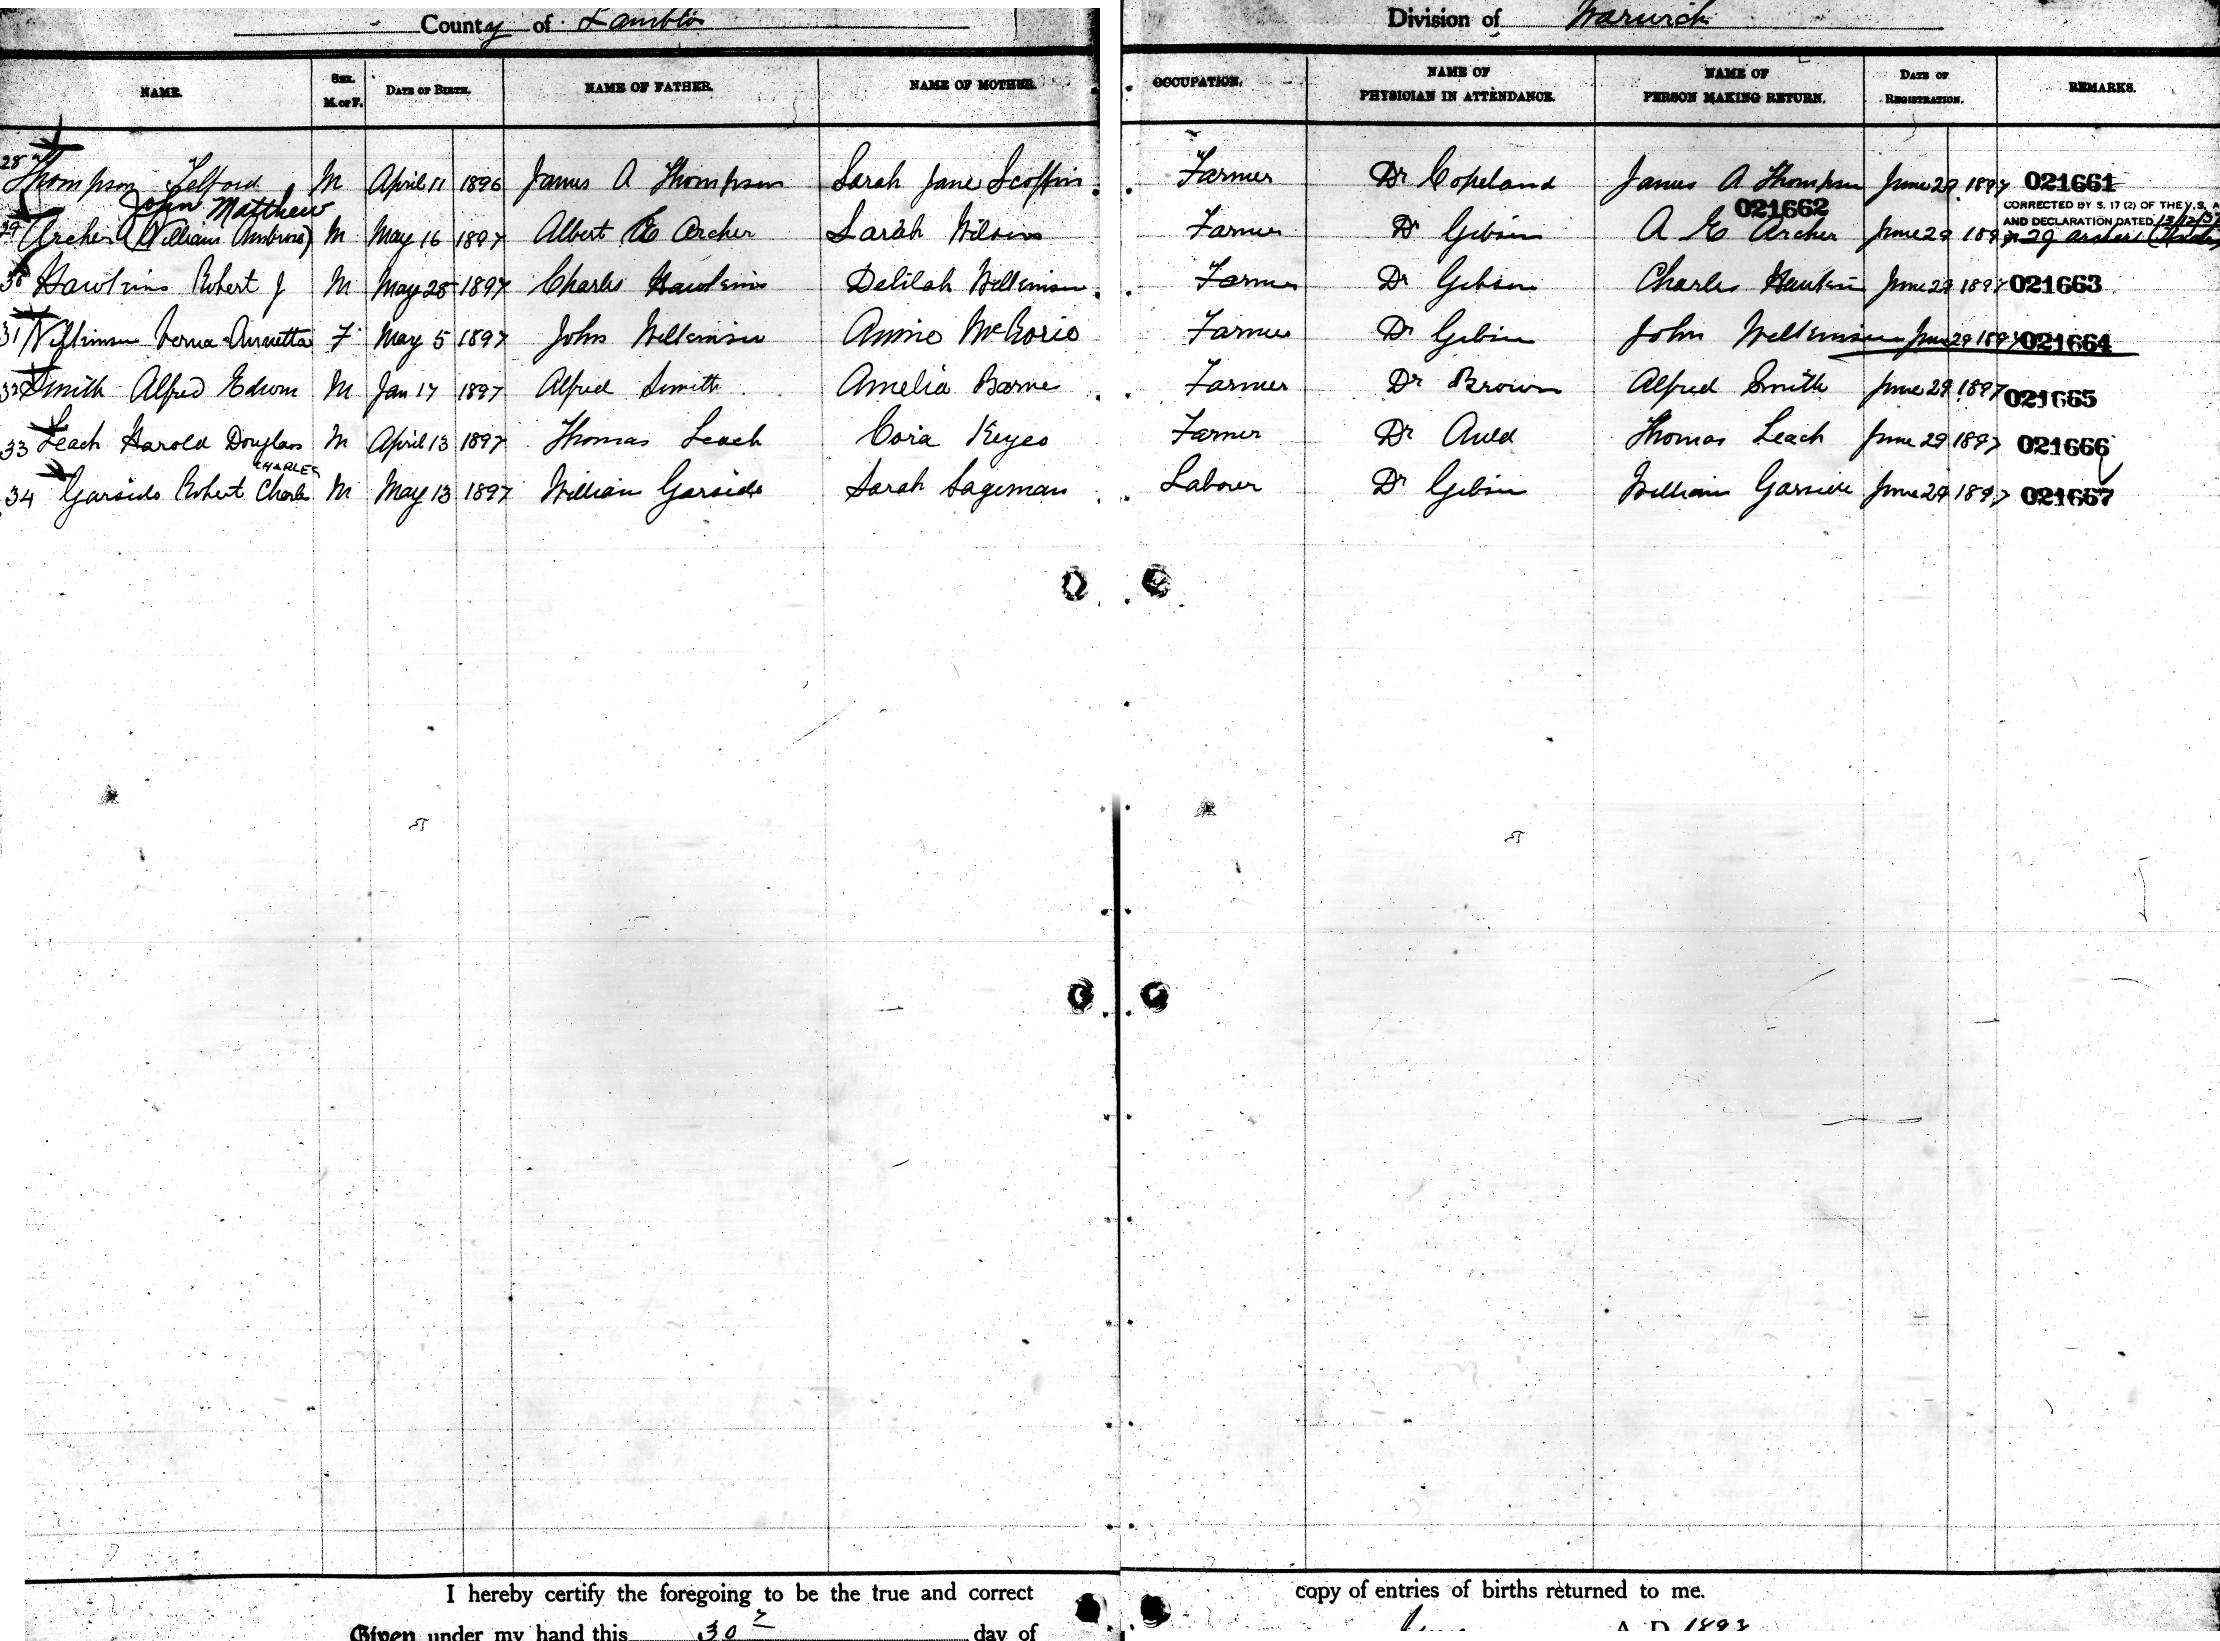 County of Lambton Division of Warwick
NAME. SEX. M. or F. DATE OF BIRTH. NAME OF FATHER. NAME OF MOTHER. OCCUPATION. NAME OF PHYSICIAN IN ATTENDANCE. NAME OF PERSON MAKING RETURN. DATE OF REGISTRATION. REMARKS.
28 Thompson Telford M April 11 1896 James A Thompson Sarah Jane Scoffin Farmer Dr Copeland James A Thompson June 29 1897 021661
John Matthew 021662 CORRECTED BY S. 17 (2) OF THE V.S. A
AND DECLARATION DATED 13/12/57
29 Archer (William Ambrose) M May 16 1897 Albert E Archer Sarah Wilson Farmer Dr Gibson A E Archer June 29 1897
30 Hawkins Robert J M May 28 1897 Charles Hawkins Delilah Wilkinson Farmer Dr Gibson Charles Hawkins June 29 1897 021663
31 Wilkinson Verna Annetta F May 5 1897 John Wilkinson Annie McRorie Farmer Dr Gibson John Wilkinson June 29 1897 021664
32 Smith Alfred Edson M Jan 17 1897 Alfred Smith Amelia Barnes Farmer Dr Brown Alfred Smith June 29 1897 021665
33 Leach Harold Douglas M April 13 1897 Thomas Leach Cora Keyes Farmer Dr Auld Thomas Leach June 29 1897 021666
CHARLES
34 Garside Robert Charles M May 13 1897 William Garside Sarah Sageman Laborer Dr Gibson William Garside June 29 1897 021667
I hereby certify the foregoing to be the true and correct copy of entries of births returned to me.
Given under my hand this 30 day of June A. D. 1897